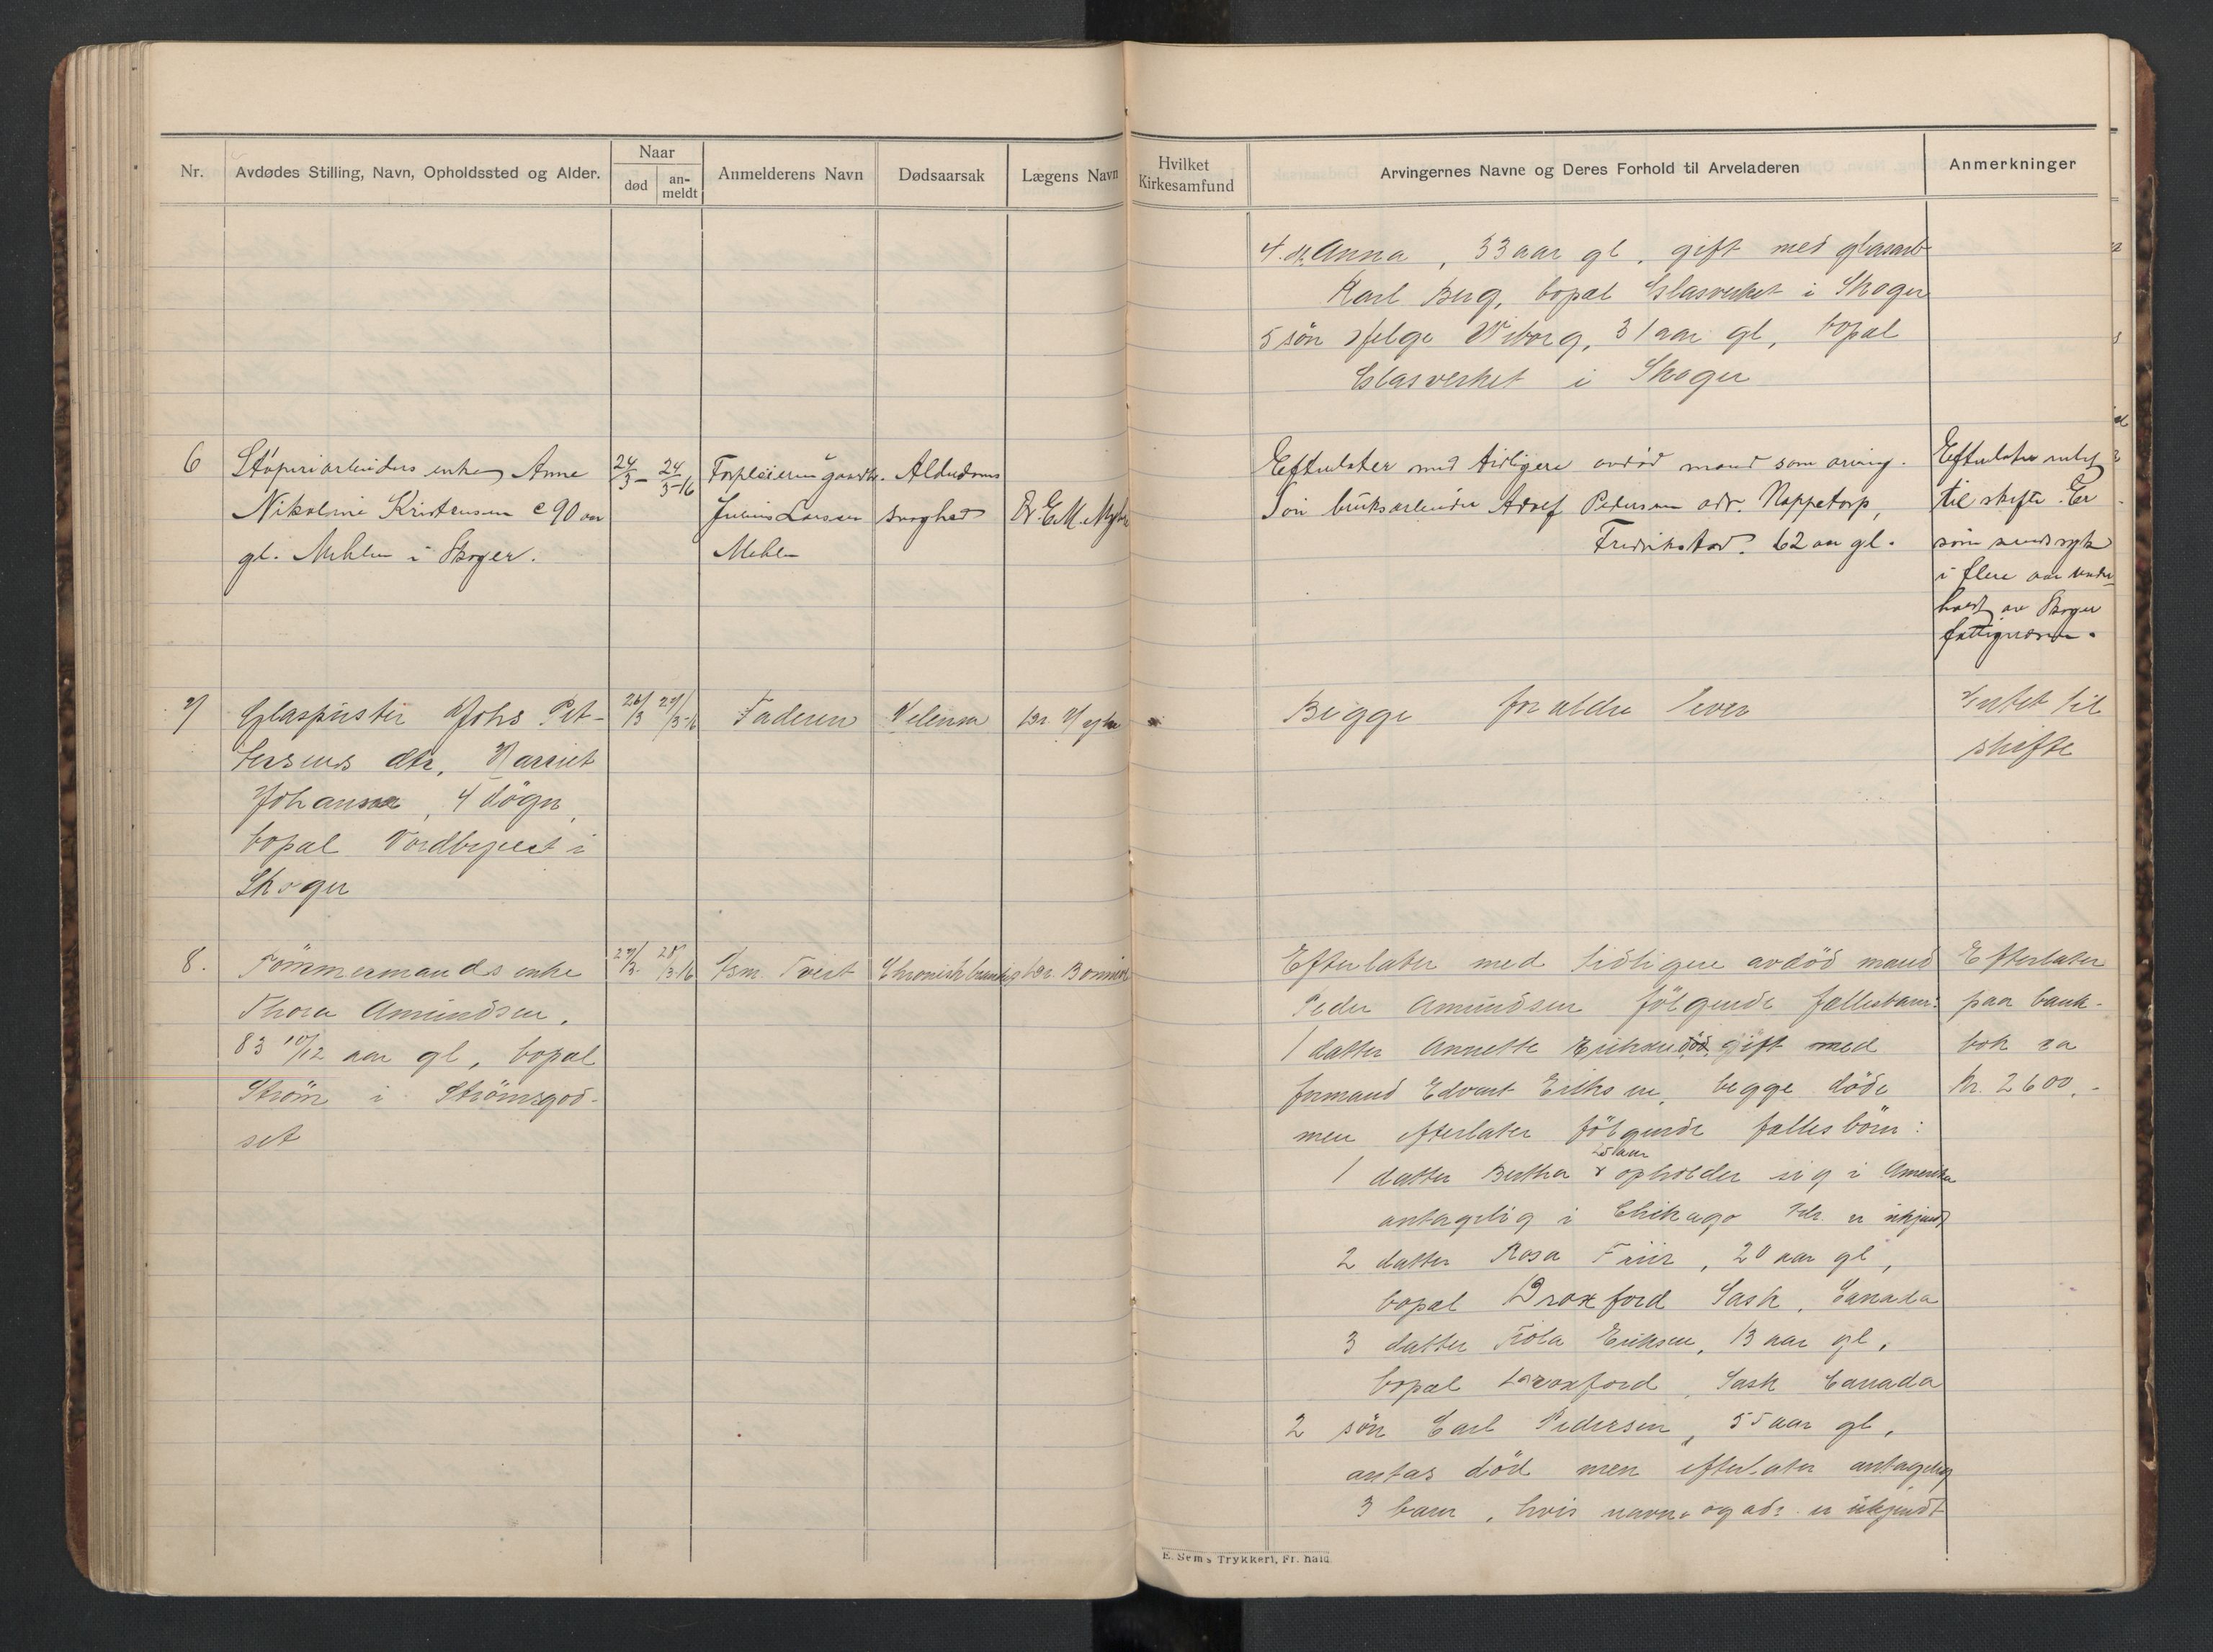 Nr.
Avdødes Stilling, Navn, Opholdssted og Alder.
Naar
død
an-
meldt
Anmelderens Navn
Dødsaarsak
Lægens Navn
Hvilket
Kirkesamfund
Arvingernes Navne og Deres Forhold til Arveladeren
Anmerkninger
4. d. Anna, 33 aar gl, gift med glasarb
Karl Berg, bopæl Glasverket i Skoger
5 søn Helge Wiborg, 31 aar gl, bopæl
Glasverket i Skoger
6
Støperiarbeiders enke Anne
Nikoline Kristensen c 90 aar
gl. Mehlen i Skoger.
24/3 – 24/3-16
Forpleieren gaardbr.
Julius Larsen
Mehlen
Alderdoms
svaghed
Dr. E.M. Myhre
Efterlater med tidligere avdød mand som arving.
Søn bruksarbeider Adolf Pedersen adr. Nappetorp,
Fredrikstad. 62 aar gl.
Efterlater intet
til skifte. Er
som sindssyk
i flere aar under-
holdt av Skoger
fattigvæsen.
7
Glaspuster Johs Pet-
tersens dtr, Harriet
Johansen, 4 døgn,
bopæl Nordbyeet i
Skoger
26/3 27/3-16
Faderen
Dr Myhre
Begge forældre lever
Intet til
skifte
8.
Tömmermands enke
Thora Amundsen,
83 10/12 aar gl, bopæl
Strøm i Strømsgod-
set
27/3 28/3-16
Tveit
Efterlater med tidligere avdød mand
Peder Amundsen følgende fællesbarn:
1 datter Annette Eriksen død gift med
formand Edvart Eriksen, begge døde
men efterlater følgende fællesbørn:
1 datter Bertha 25 aar opholder sig i Amerika
antagelig i Chikago adr. er ukjendt
2 datter Rosa Friis, 20 aar gl,
bopæl Droxford Sask, Canada
3 datter Fiola Eriksen, 13 aar gl,
bopæl Droxford, Sask Canada
2 søn Carl Pedersen, 55 aar gl,
antas død men efterlater antagelig
3 barn, hvis navn og adr. er ukjendt
Efterlater
paa bank-
bok ca
Kr. 2600,-
E. Sem's Trykkeri, Fr. hald